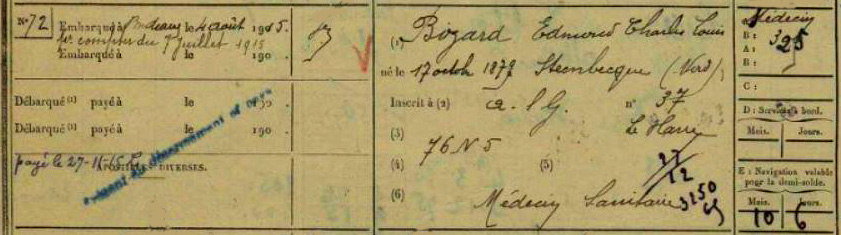 N° 72 Embarqué à Bordeaux le 4 août 1915.
à compter du 7 juillet 1915
Embarqué à le 190 .
Débarqué (1) payé à le 190 .
Débarqué (1) payé à le 190 .
payé le 27-11-15
APOSTILLES DIVERSES.
(1) Bozard Edmond Charles Louis
né le 17 octob 1879 Steenbecque (Nord)
Inscrit à (2) n° 37
(3) Le Havre
76 N 5
(4) (5)
27/12
(6) Médecin Sanitaire 3250
Médecin
B : 325
A :
B :
C :
D : Services à bord.
Mois. Jours.
E : Navigation valable
pour la demi-solde.
Mois. Jours.
10 6